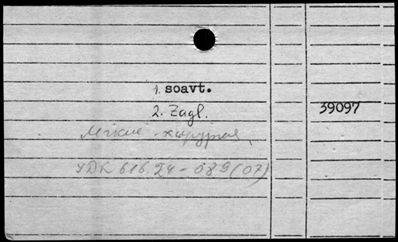 1. soavt.
2. Zagl. 39097
Легкие - хирургия,
УДК 616.24-089(07)